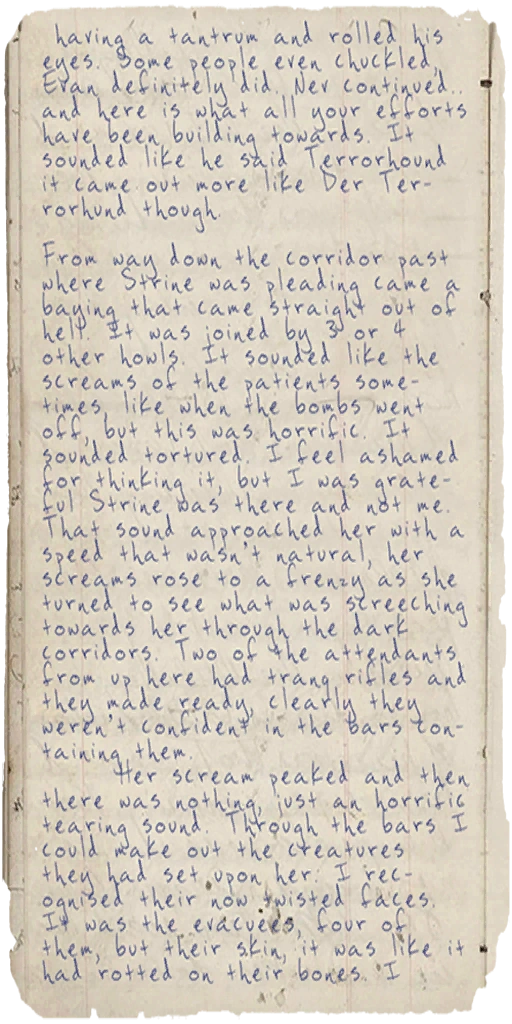 having a tantrum and rolled his
eyes. Some people even chuckled,
Evan definitely did. Nev continued..
and here is what all your efforts
have been building towards. It
sounded like he said Terrorhound
it came out more like Der Ter-
rorhund though.
From way down the corridor past
where Strine was pleading came a
baying that came straight out of
hell. It was joined by 3 or 4
other howls. It sounded like the
screams of the patients some-
times, like when the bombs went
off, but this was horrific. It
sounded tortured. I feel ashamed
for thinking it, but I was grate-
ful Strine was there and not me.
That sound approached her with a
speed that wasn't natural, her
screams rose to a frenzy as she
turned to see what was screeching
towards her through the dark
corridors. Two of the attendants
from up here had tranq rifles and
they made ready, clearly they
weren't confident in the bars con-
taining them.
Her scream peaked and then
there was nothing, just an horrific
tearing sound. Through the bars I
could make out the creatures
they had set upon her. I rec-
ognised their now twisted faces.
It was the evacuees, four of
them, but their skin, it was like it
had rotted on their bones. I